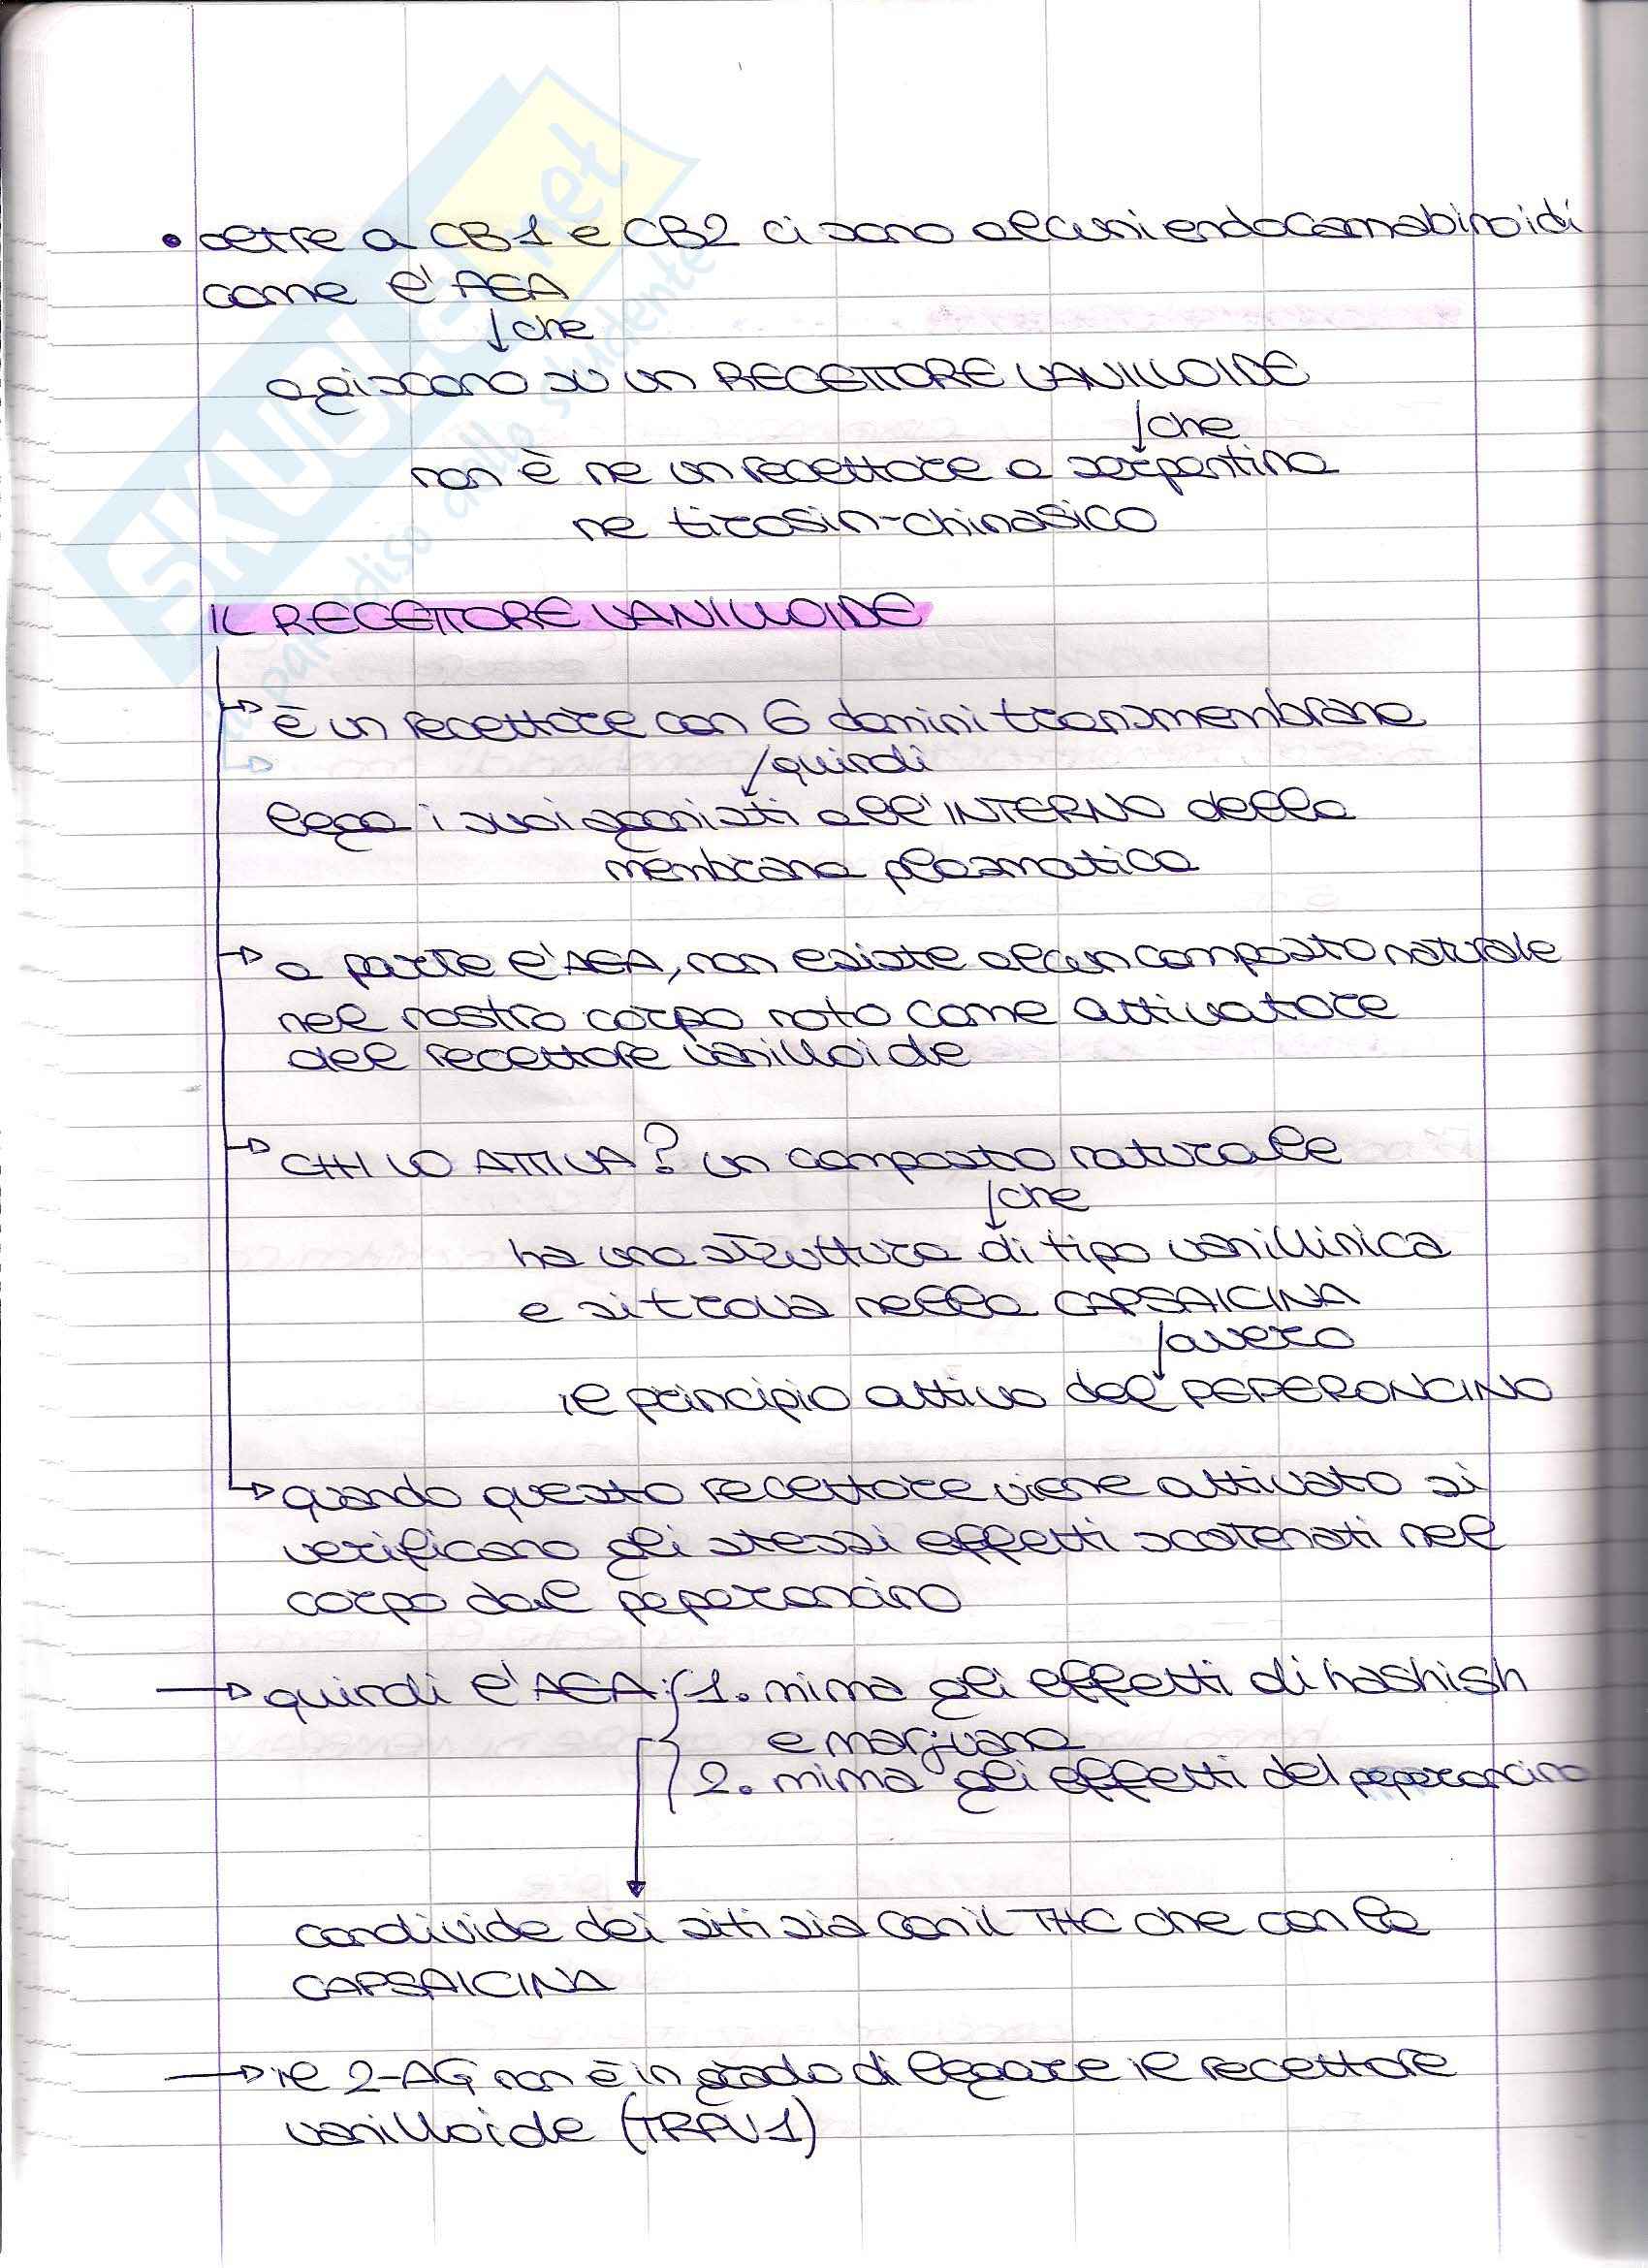 • oltre a CB1 e CB2 ci sono alcuni endocannabinoidi
come l'AEA
↓ che
agiscono su un RECETTORE VANILLOIDE
↓ che
non è ne un recettore a serpentina
ne tirosin-chinasico
IL RECETTORE VANILLOIDE
→ è un recettore con 6 domini transmembrana
↓ quindi
lega i suoi agonisti all'INTERNO della
membrana plasmatica
→ a parte l'AEA, non esiste alcun composto naturale
nel nostro corpo noto come attivatore
del recettore vanilloide
→ CHI LO ATTIVA? un composto naturale
↓ che
ha una struttura di tipo vanillinica
e si trova nella CAPSAICINA
↓ ovvero
il principio attivo del PEPERONCINO
→ quando questo recettore viene attivato si
verificano gli stessi effetti scatenati nel
corpo dal peperoncino
→ quindi l'AEA: { 1. mima gli effetti di hashish
e marjuana
2. mima gli effetti del peperoncino
condivide dei siti sia con il THC che con la
CAPSAICINA
→ il 2-AG non è in grado di legare il recettore
vanilloide (TRPV1)
SKUOLA.net
il paradiso dello studente